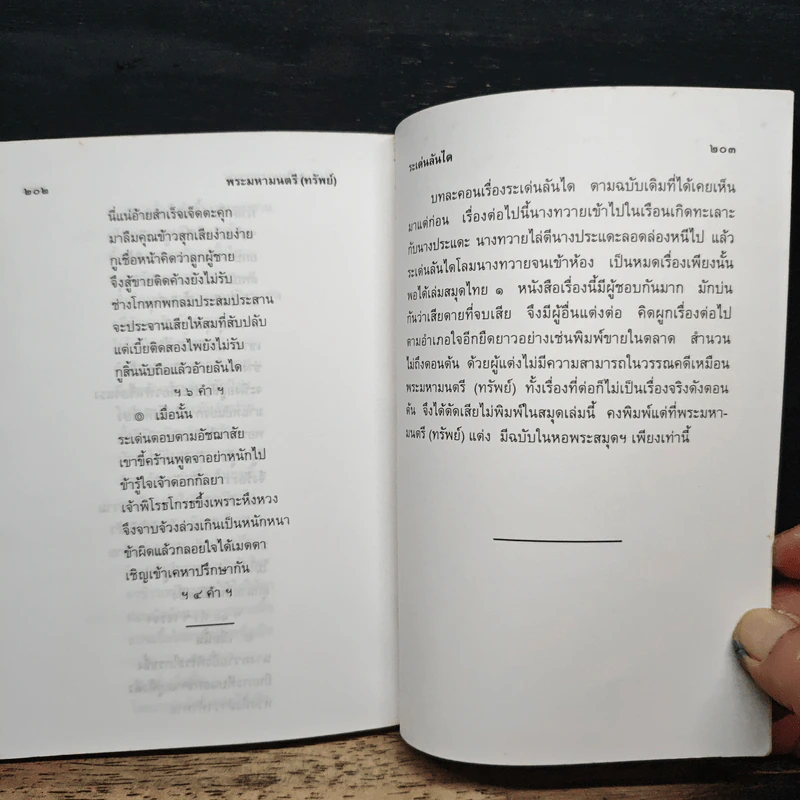 ๒๐๒ พระมหามนตรี (ทรัพย์)
นี่แน่อ้ายสำเร็จเจ็ดตะคุก
มาลืมคุณข้าวสุกเสียง่ายง่าย
กูเชื่อหน้าคิดว่าลูกผู้ชาย
จึงสู้ขายติดค้างยังไม่รับ
ช่างโกหกพกลมประสมประสาน
จะประจานเสียให้สมที่สับปลับ
แต่เบี้ยติดสองไพยังไม่รับ
กูสิ้นนับถือแล้วอ้ายลันได
ฯ ๖ คำ ฯ
๏ เมื่อนั้น
ระเด่นตอบตามอัชฌาสัย
เขาขี้คร้านพูดจาอย่าหนักไป
ข้ารู้ใจเจ้าดอกกัลยา
เจ้าพิโรธโกรธขึ้งเพราะหึงหวง
จึงจาบจ้วงล่วงเกินเป็นหนักหนา
ข้าผิดแล้วกลอยใจได้เมตตา
เชิญเข้าเคหาปรึกษากัน
ฯ ๔ คำ ฯ
ระเด่นลันได ๒๐๓
บทละคอนเรื่องระเด่นลันได ตามฉบับเดิมที่ได้เคยเห็น
มาแต่ก่อน เรื่องต่อไปนี้นางทวายเข้าไปในเรือนเกิดทะเลาะ
กับนางประแดะ นางทวายไล่ตีนางประแดะลอดล่องหนีไป แล้ว
ระเด่นลันไดโลมนางทวายจนเข้าห้อง เป็นหมดเรื่องเพียงนั้น
พอได้เล่มสมุดไทย ๑ หนังสือเรื่องนี้มีผู้ชอบกันมาก มักบ่น
กันว่าเสียดายที่จบเสีย จึงมีผู้อื่นแต่งต่อ คิดผูกเรื่องต่อไป
ตามอำเภอใจอีกยืดยาวอย่างเช่นพิมพ์ขายในตลาด สำนวน
ไม่ถึงตอนต้น ด้วยผู้แต่งไม่มีความสามารถในวรรณคดีเหมือน
พระมหามนตรี (ทรัพย์) ทั้งเรื่องที่ต่อก็ไม่เป็นเรื่องจริงดังตอน
ต้น จึงได้ตัดเสียไม่พิมพ์ในสมุดเล่มนี้ คงพิมพ์แต่ที่พระมหา-
มนตรี (ทรัพย์) แต่ง มีฉบับในหอพระสมุดฯ เพียงเท่านี้